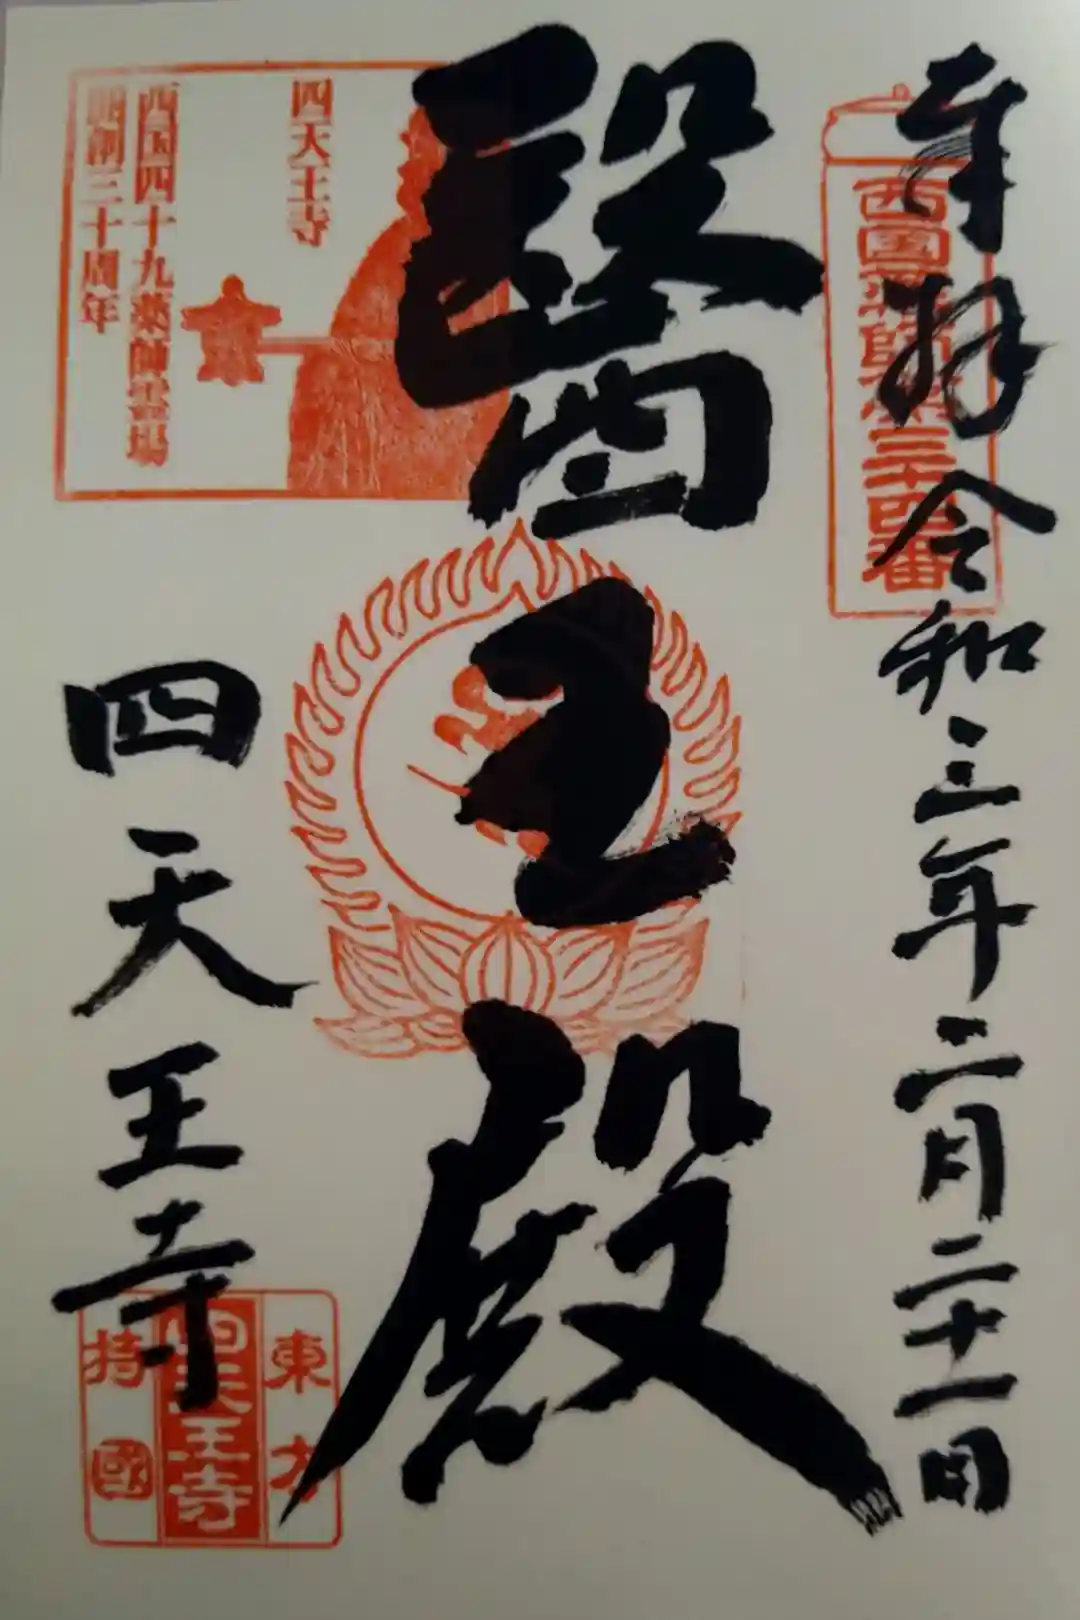 奉拝
令和三年二月二十一日
西國薬師第三十四番
醫王殿
四天王寺
西国四十九薬師霊場
開創三十周年
四天王寺
東方
四天王寺
持國